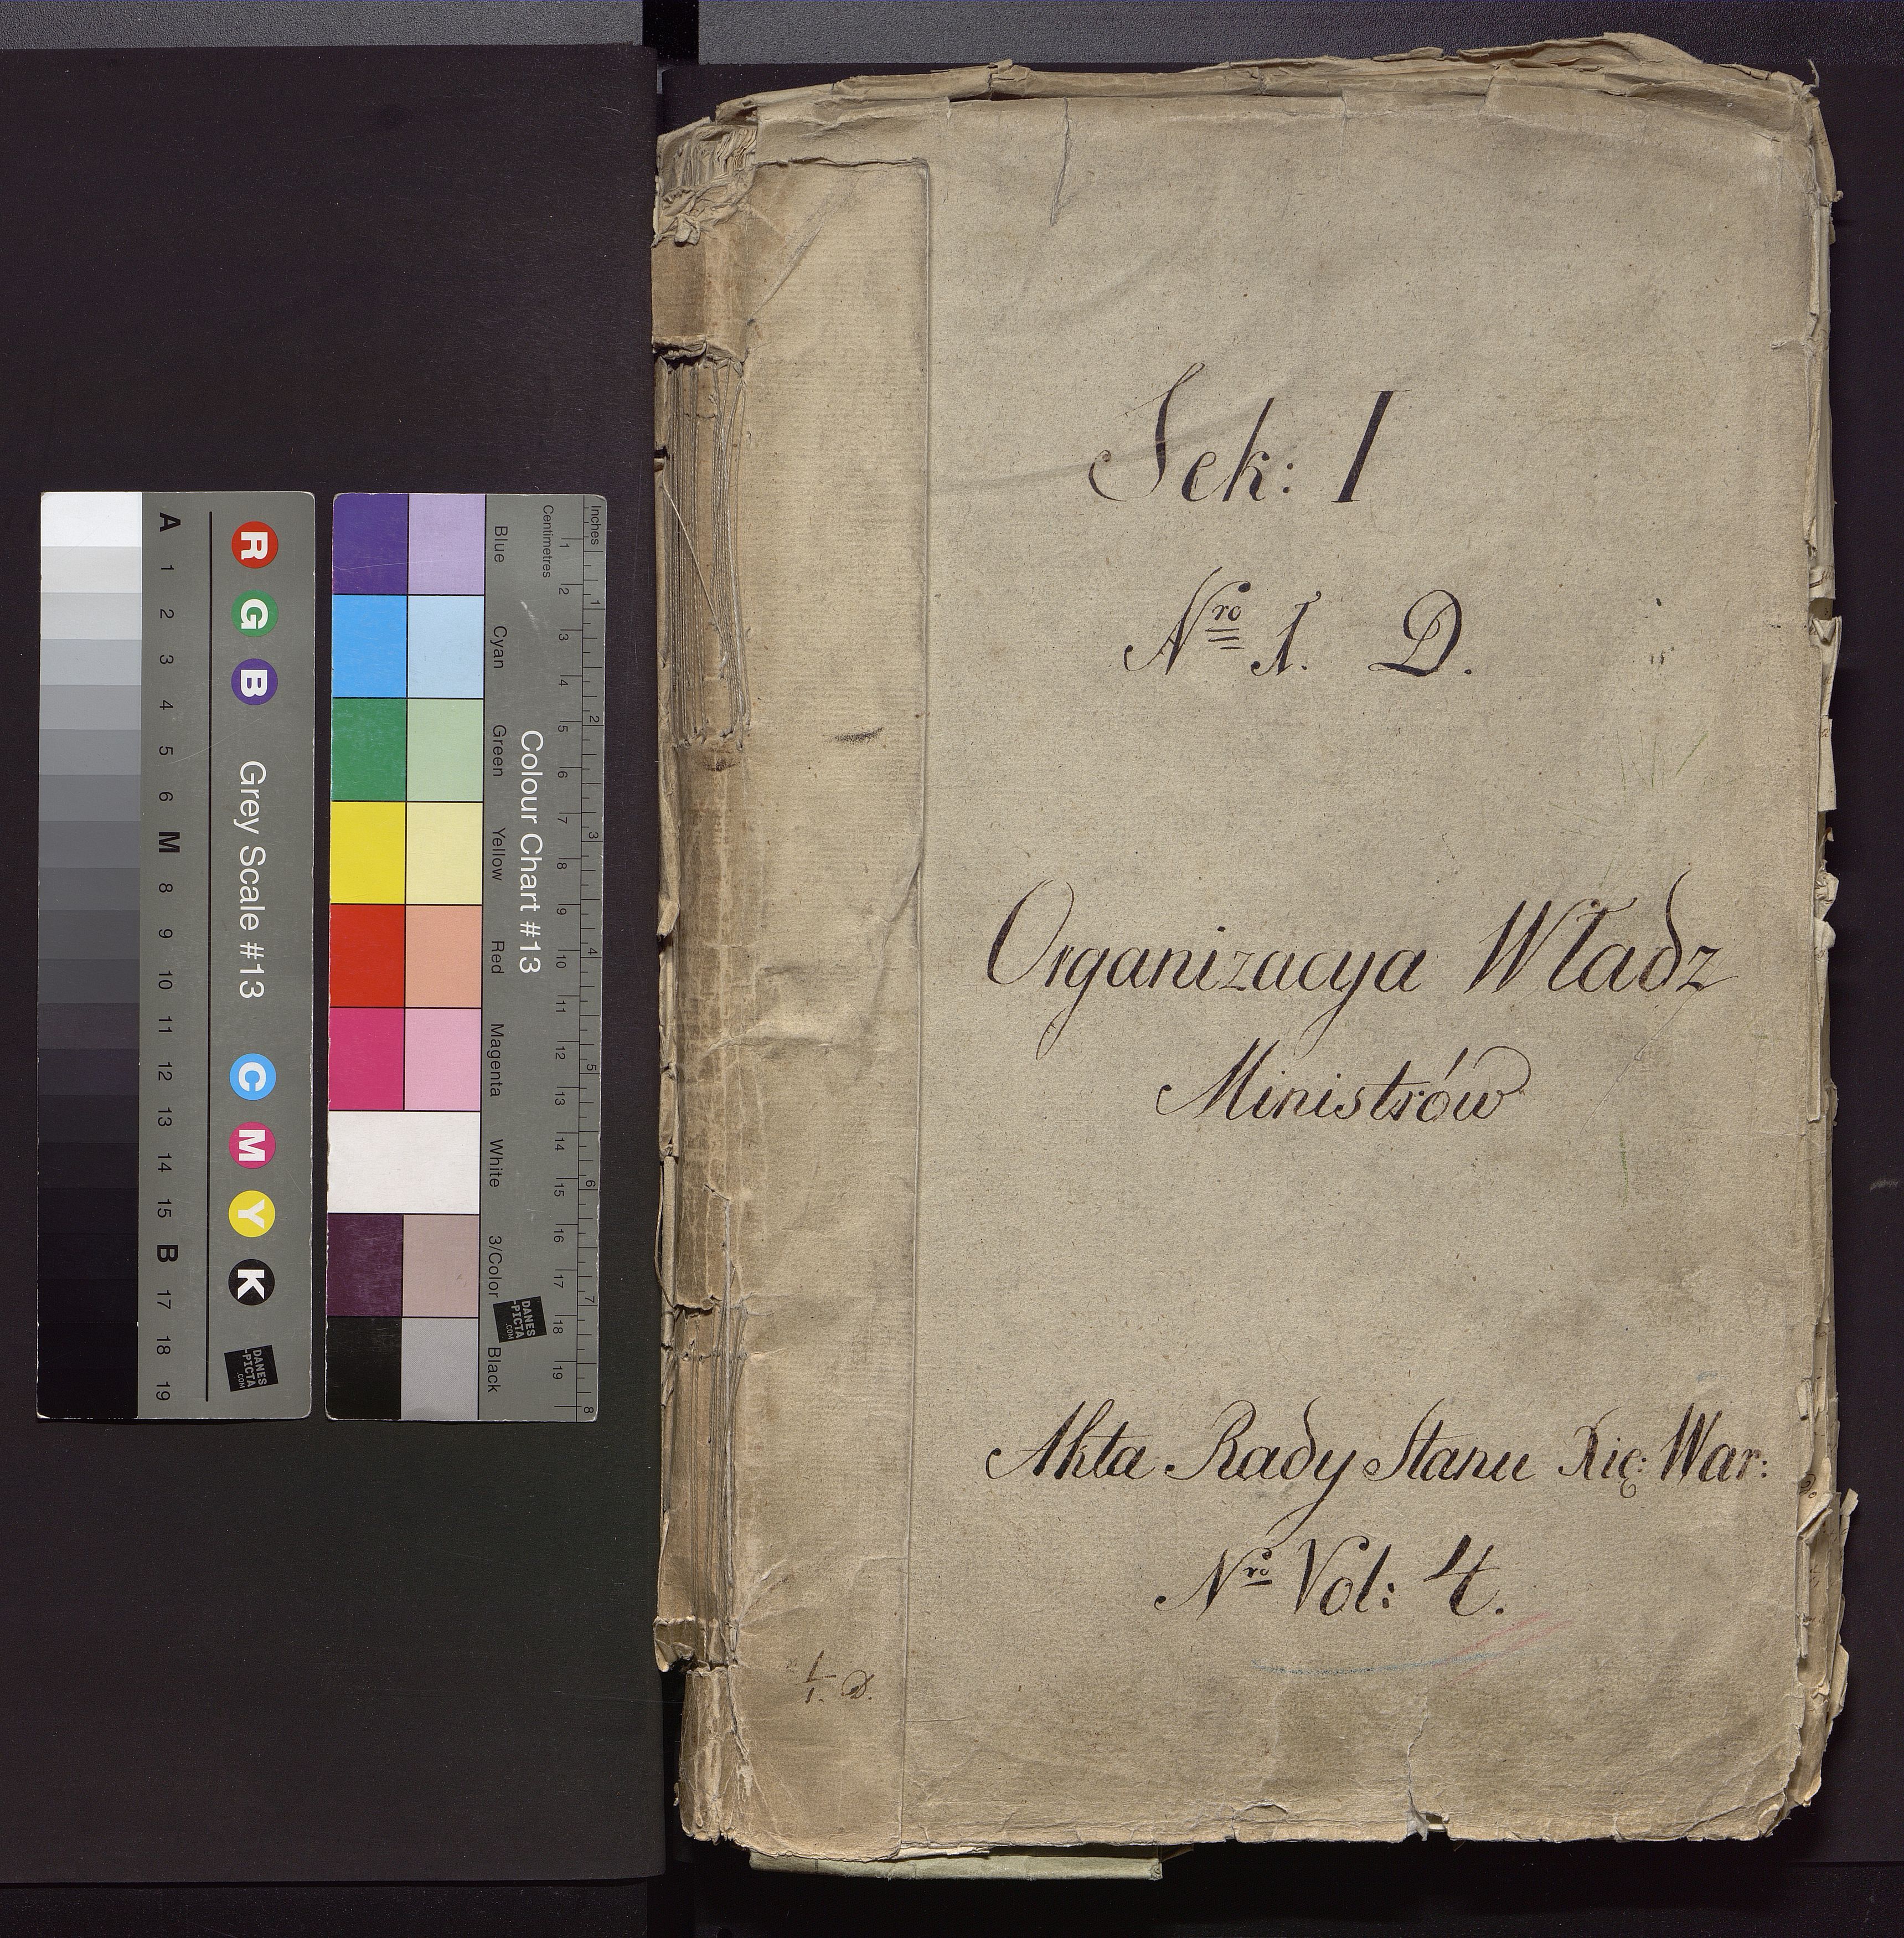 Sek: I
Nro 1. D.
Organizacya Władz
Ministrów
Akta Rady Stanu Xię: War:
Nro Vol: 4.
A 1 2 3 4 5 6 M 8 9 10 11 12 13 14 15 B 17 18 19
R G B Grey Scale #13 C M Y K
DANES
-PICTA
.COM
Blue Cyan Green Yellow Red Magenta White 3/Color Black
Colour Chart #13
DANES
-PICTA
.COM
Centimetres 1 2 3 4 5 6 7 8 9 10 11 12 13 14 15 16 17 18 19
Inches 1 2 3 4 5 6 7 8